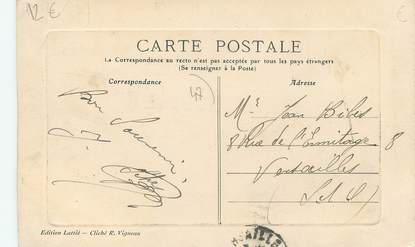 12 €
€
CARTE POSTALE
La Correspondance au recto n'est pas acceptée par tous les pays étrangers
(Se renseigner à la Poste)
Correspondance
Adresse
47
Bon Souvenir
Mr Jean Bibes
8 Rue de l'Ermitage 8
Versailles
(S & O)
Edition Lattié — Cliché R. Vigneau
SAILLES